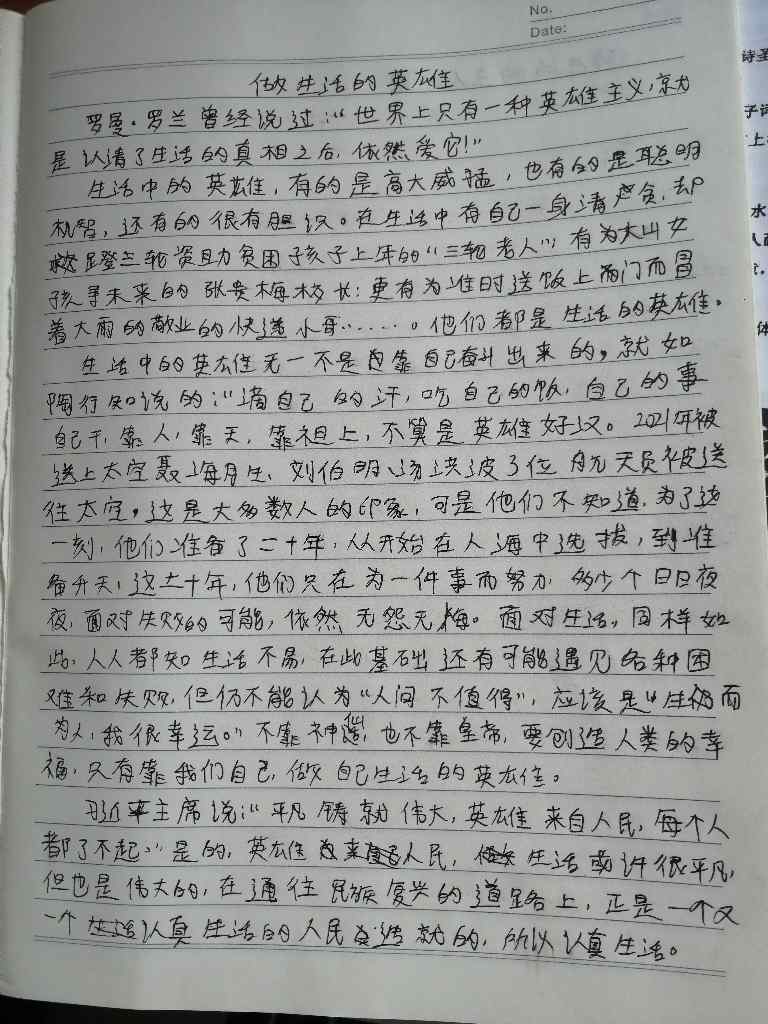 No.
Date:
做生活的英雄
罗曼·罗兰曾经说过:“世界上只有一种英雄主义,就
是认清了生活的真相之后,依然爱它!”
生活中的英雄,有的是高大威猛,也有的是聪明
机智,还有的很有胆识。在生活中有自己一身清贫,却
蹬三轮资助贫困孩子上年的“三轮老人”;有为大山女
孩寻未来的张贵梅校长;更有为准时送饭上而门而冒
着大雨的敬业的快递小哥……。他们都是生活的英雄。
生活中的英雄无一不是靠自己奋斗出来的,就如
陶行知说的:“滴自己的汗,吃自己的饭,自己的事
自己干,靠人,靠天,靠祖上,不算是英雄好汉。2021年被
送上太空聂海胜、刘伯明、汤洪波3位航天员被送
往太空,这是大多数人的印象,可是他们不知道,为了这
一刻,他们准备了二十年,从开始在人海中选拔,到准
备升天,这二十年,他们只在为一件事而努力,多少个日日夜
夜,面对失败的可能,依然无怨无悔。面对生活,同样如
此,人人都知生活不易,在此基础还有可能遇见各种困
难和失败,但仍不能认为“人间不值得”,应该是“生而
为人,我很幸运。”不靠神仙,也不靠皇帝,要创造人类的幸
福,只有靠我们自己,做自己生活的英雄。
习近平主席说:“平凡铸就伟大,英雄来自人民,每个人
都了不起。”是的,英雄来自人民,生活或许很平凡,
但也是伟大的,在通往民族复兴的道路上,正是一个又
一个认真生活的人民造就的,所以认真生活。
诗圣
子词
上
水
体